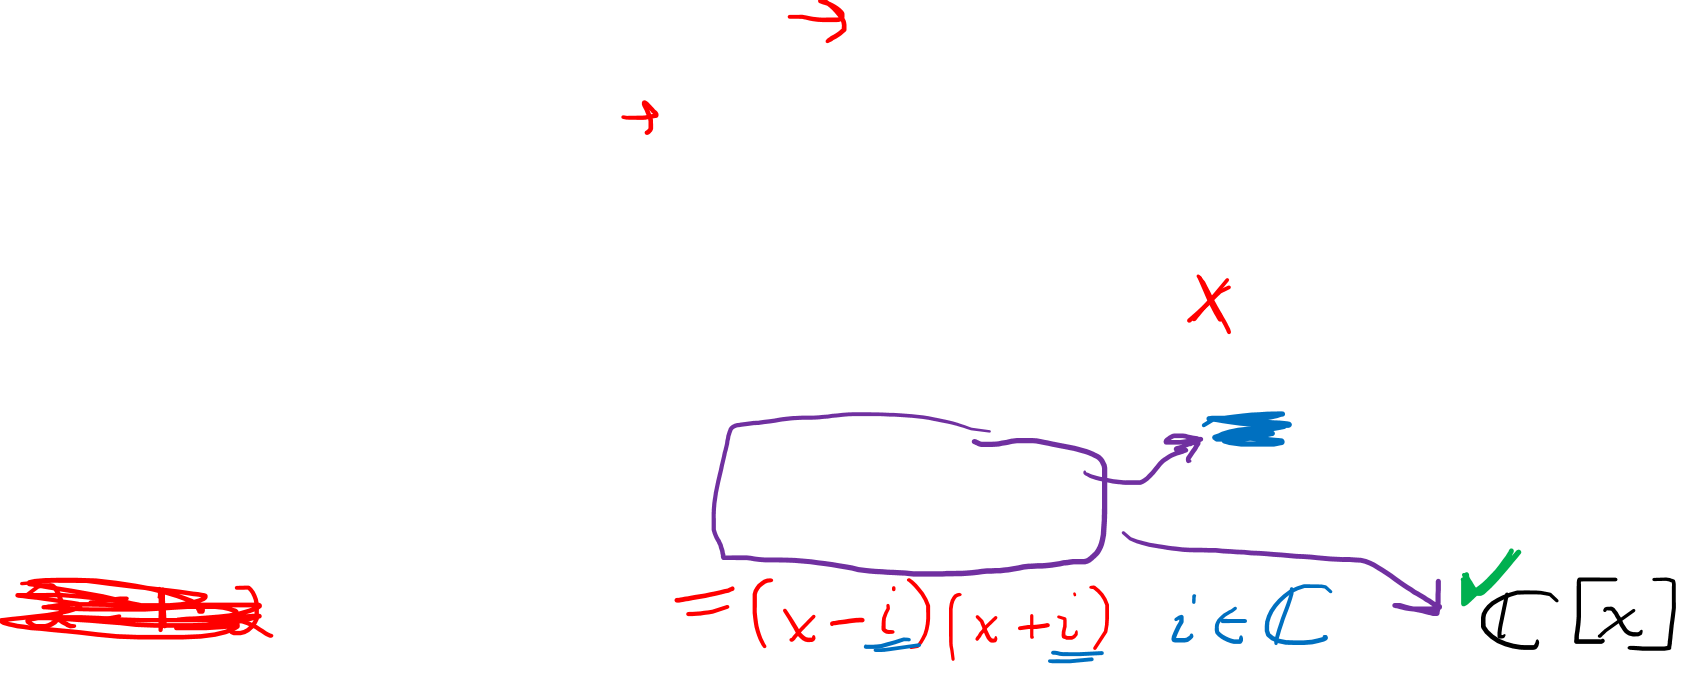 →
→
X
= (x - i)(x + i) i ∈ ℂ ✓ ℂ[x]